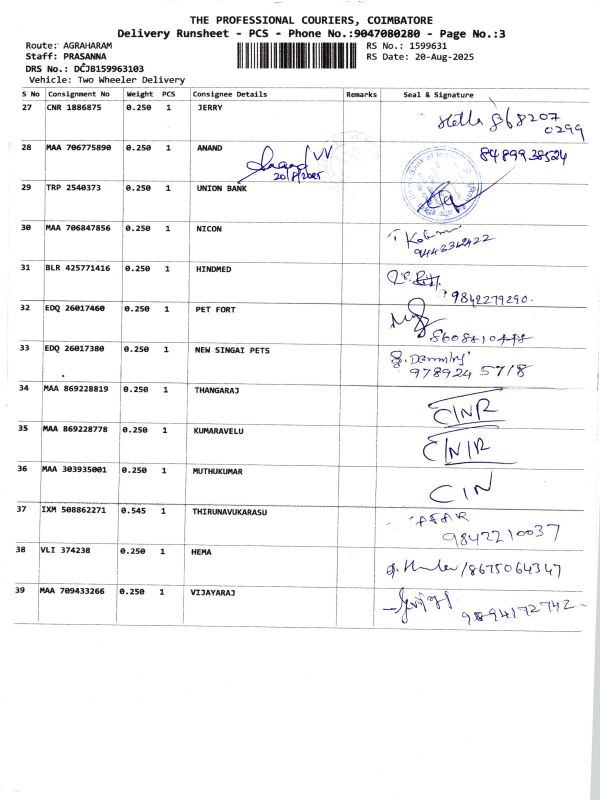 THE PROFESSIONAL COURIERS, COIMBATORE
Delivery Runsheet - PCS - Phone No.:9047080280 - Page No.:3
Route: AGRAHARAM RS No.: 1599631
Staff: PRASANNA RS Date: 20-Aug-2025
DRS No.: DCJB159963103
Vehicle: Two Wheeler Delivery
S No Consignment No Weight PCS Consignee Details Remarks Seal & Signature
27 CNR 1886875 0.250 1 JERRY
0299
28 MAA 706775890 0.250 1 ANAND 8489938524
Anand
20/8/2025
29 TRP 2540373 0.250 1 UNION BANK
30 MAA 706847856 0.250 1 NICON
9442342422
31 BLR 425771416 0.250 1 HINDMED
9842279290.
32 EDQ 26017460 0.250 1 PET FORT
8608410448
33 EDQ 26017380 0.250 1 NEW SINGAI PETS
978924 5718
34 MAA 869228819 0.250 1 THANGARAJ C/N/R
35 MAA 869228778 0.250 1 KUMARAVELU C/N/R
36 MAA 303935001 0.250 1 MUTHUKUMAR C/N
37 IXM 508862271 0.545 1 THIRUNAVUKARASU
9842210037
38 VLI 374238 0.250 1 HEMA /8675064347
39 MAA 709433266 0.250 1 VIJAYARAJ 9894172742